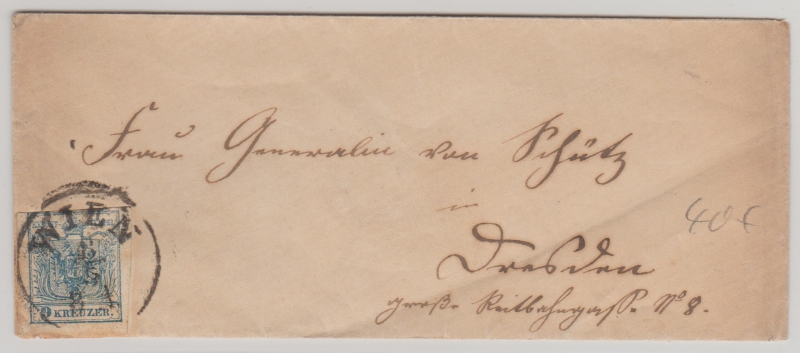 Frau Generalin von Schütz
in
Dresden
große Reitbahngasse No 8.
40 f
WIEN
9 KREUZER.